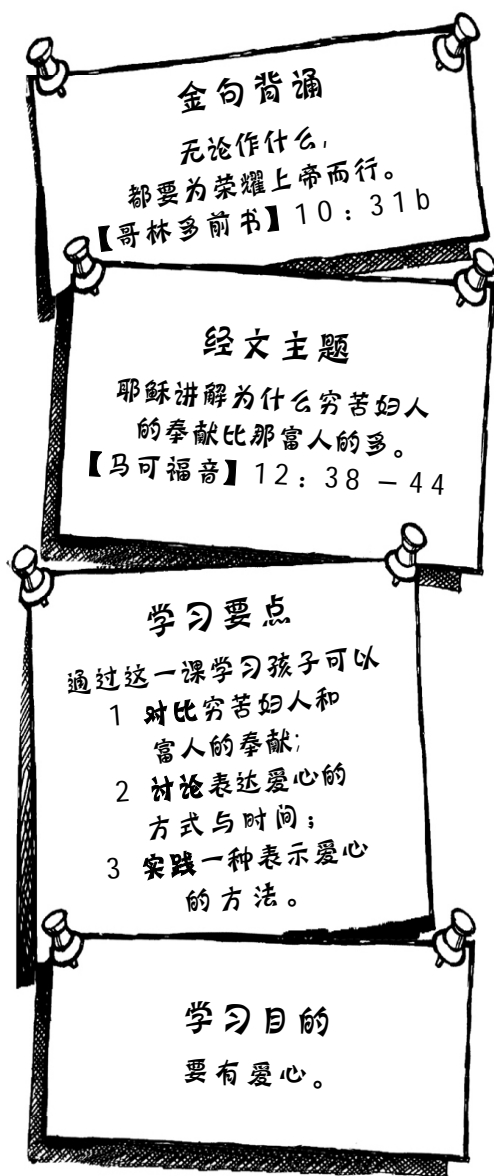 金句背诵
无论作什么，
都要为荣耀上帝而行。
【哥林多前书】10：31b
经文主题
耶稣讲解为什么穷苦妇人
的奉献比那富人的多。
【马可福音】12：38－44
学习要点
通过这一课学习孩子可以
1 对比穷苦妇人和
富人的奉献;
2 讨论表达爱心的
方式与时间；
3 实践一种表示爱心
的方法。
学习目的
要有爱心。